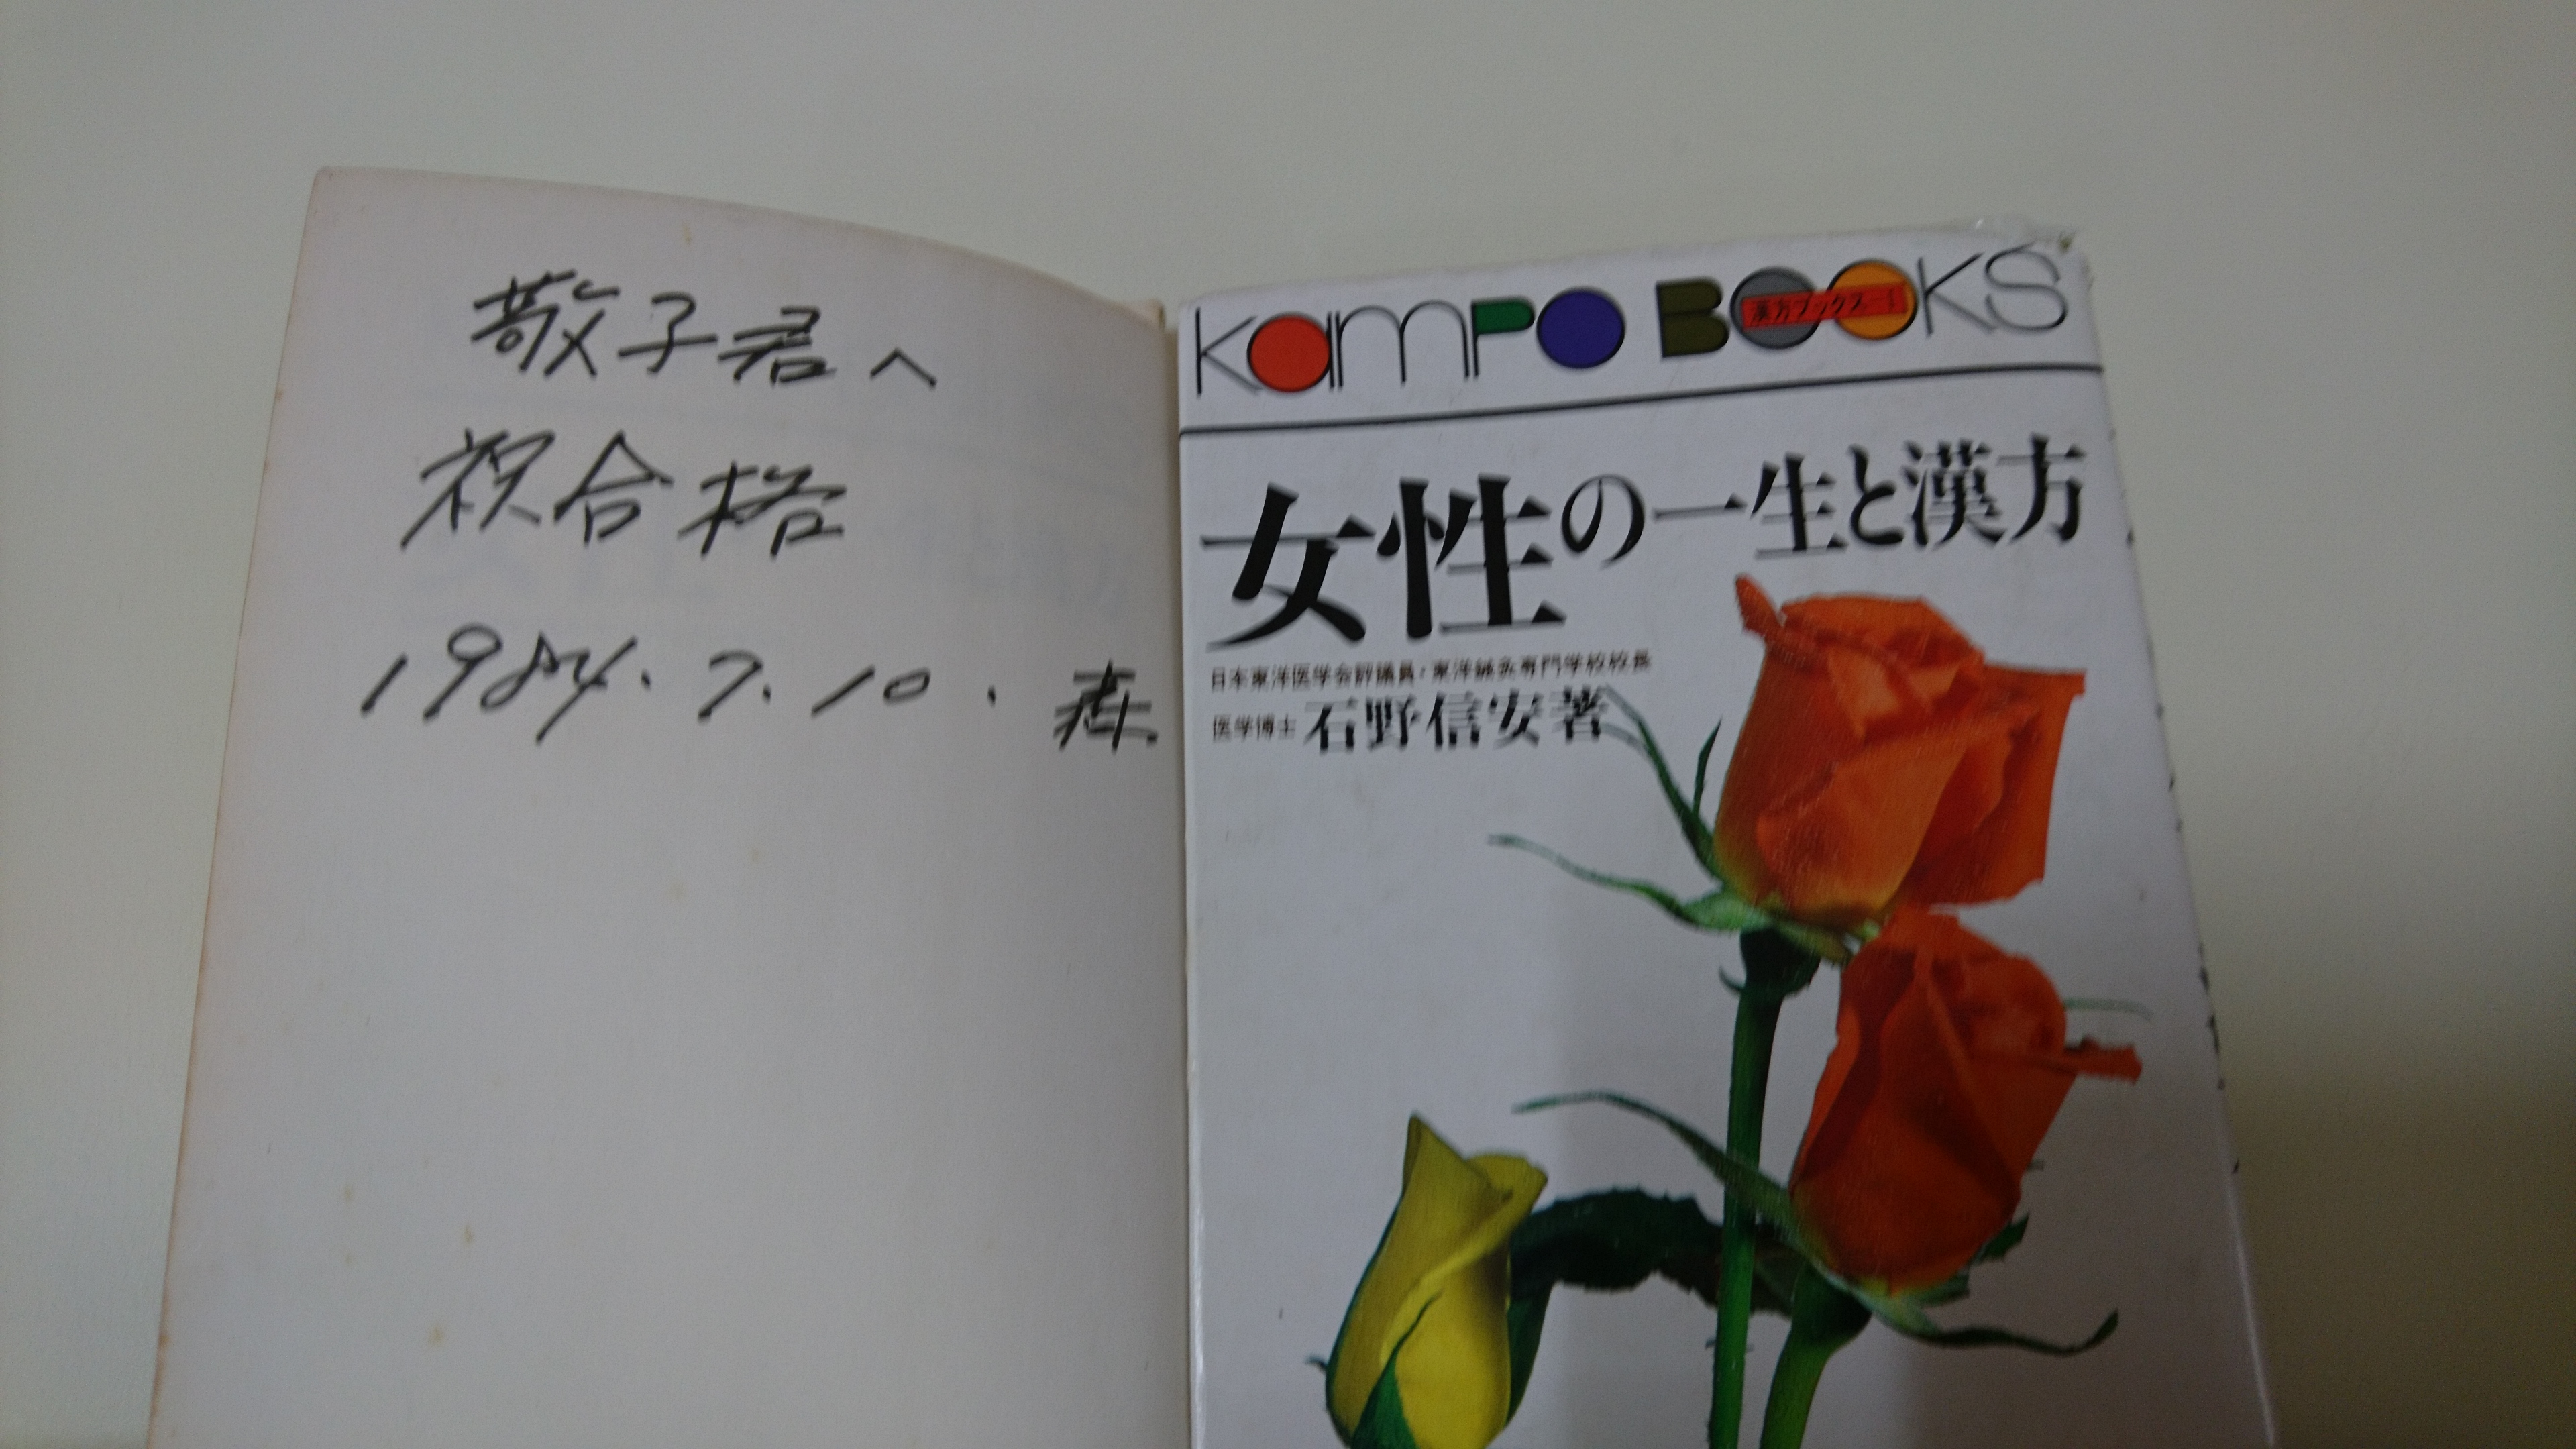 敬子君へ
祝合格
1984.7.10.
kampo BOOKS
漢方ブックス
女性の一生と漢方
日本東洋医学会評議員・東洋鍼灸専門学校校長
医学博士 石野信安著